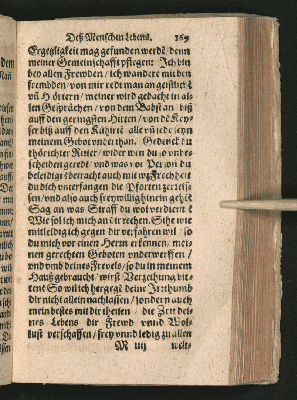 Deß Menschen Lebens. 269
Ergetzligkeit mag gefunden werdẽ / denn
meiner Gemeinschafft pflegen: Ich bin
bey allen Frewden / ich wandere mit den
frembden / von mir redt man an geistlichẽ
vñ Hörtern / meiner wird gedacht in al-
len Gesprächen / von dem Babst an biß
auff den geringsten Hirten / von dẽ Key-
ser biß auff den
meinem Gebot vnderthan. Gedenck du
thörichter Reiter / wider wen du
scheiden geredt / vnd was vor Person du
beleidigst betracht auch mit Frechheit
du dich vnterfangen die Pforten zerreis-
sen / vnd also auch freywillig hinein gehẽ?
Sag an was Straff du wol verdient?
Wie sol ich mich an dir rechen. Sihe wie
mitleidig ich gegen dir verfahren wil / so
du mich vor einen Herrn erkennen / mei-
nen gerechten Geboten vnderwerffen /
vnd vmb deines Frevels / so du in meinem
Hauß gebraucht / wirst Verzeihung bit-
ten: So wil ich hergegẽ deine Irrthumb
dir nicht allein nachlassen / sondern auch
mein bestes mit dir theilen / die Zeit dei-
nes Lebens dir Frewd vnnd Wol-
lust verschaffen / frey vnnd ledig zu allen
R iiij welt-